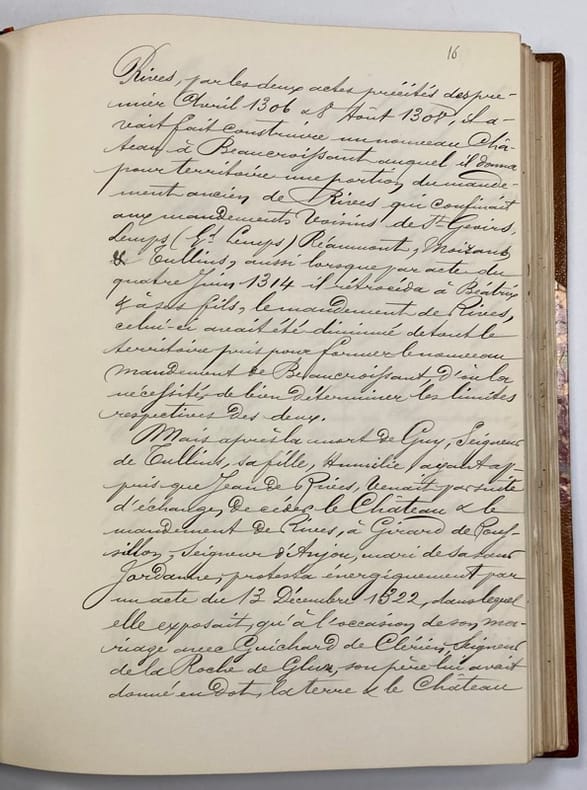 16
Rives, par les deux actes précités des pre-
mier Avril 1306 & 8 Août 1308, il a-
vait fait construire un nouveau Châ-
teau à Beaucroissant auquel il donna
pour territoire une portion du mande-
ment ancien de Rives qui confinait
aux mandements voisins de St Geoirs,
Lemps (Gd Lemps) Réaumont, Moirans
& Tullins, aussi lorsque par acte du
quatre Juin 1314 il rétrocéda à Béatrix
& à ses fils, le mandement de Rives,
celui-ci avait été diminué de tout le
territoire pris pour former le nouveau
mandement de Beaucroissant d'où la
nécessité de bien déterminer les limites
respectives des deux.
Mais après la mort de Guy, Seigneur
de Tullins, sa fille, Humilie, ayant ap-
pris que Jean de Rives, venait par suite
d'échange, de céder le Château & le
mandement de Rives, à Girard de Rous-
sillon, Seigneur d'Anjou, mari de sa sœur
Jordanne, protesta énergiquement par
un acte du 13 Décembre 1322, dans lequel
elle exposait, qu'à l'occasion de son ma-
riage avec Guichard de Clérieu, Seigneur
de la Roche de Glun, son père lui avait
donné en Dot, la terre & le Château